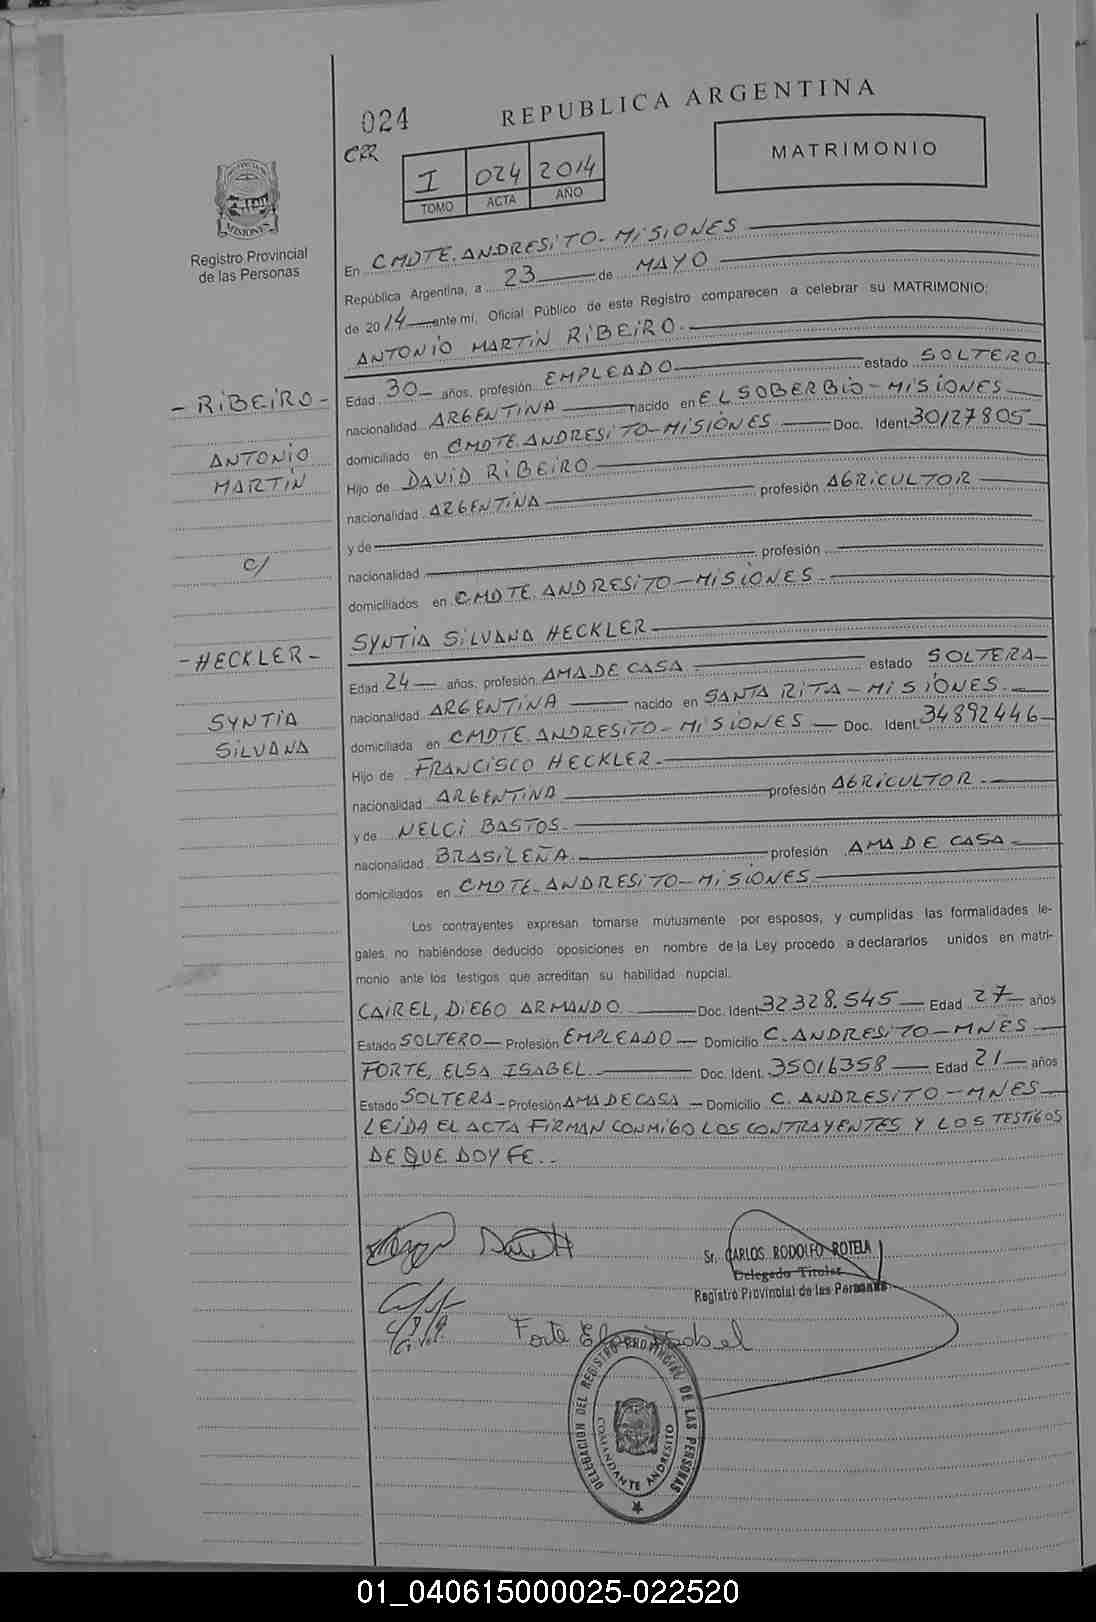 024
REPUBLICA ARGENTINA
CRR
I 024 2014
TOMO ACTA AÑO
MATRIMONIO
PROVINCIA DE
MISIONES
Registro Provincial
de las Personas
En CMDTE. ANDRESITO-MISIONES
República Argentina, a 23 de MAYO
de 2014 ante mí, Oficial Público de este Registro comparecen a celebrar su MATRIMONIO:
ANTONIO MARTIN RIBEIRO.
Edad 30 años, profesión EMPLEADO estado SOLTERO
nacionalidad ARGENTINA nacido en EL SOBERBIO-MISIONES
domiciliado en CMDTE. ANDRESITO-MISIONES Doc. Ident. 30127805
Hijo de DAVID RIBEIRO.
nacionalidad ARGENTINA profesión AGRICULTOR
y de
nacionalidad profesión
domiciliados en CMDTE. ANDRESITO-MISIONES.
SYNTIA SILVANA HECKLER
Edad 24 años, profesión AMA DE CASA estado SOLTERA
nacionalidad ARGENTINA nacido en SANTA RITA-MISIONES.
domiciliada en CMDTE. ANDRESITO-MISIONES Doc. Ident. 34892446
Hijo de FRANCISCO HECKLER.
nacionalidad ARGENTINA profesión AGRICULTOR.
y de NELCI BASTOS.
nacionalidad BRASILEÑA. profesión AMA DE CASA
domiciliados en CMDTE. ANDRESITO-MISIONES
- RIBEIRO -
ANTONIO
MARTIN
C/
- HECKLER -
SYNTIA
SILVANA
Los contrayentes expresan tomarse mutuamente por esposos, y cumplidas las formalidades le-
gales, no habiéndose deducido oposiciones en nombre de la Ley procedo a declararlos unidos en matri-
monio ante los testigos que acreditan su habilidad nupcial.
CAIREL, DIEGO ARMANDO. Doc. Ident. 32.328.545 Edad 27 años
Estado SOLTERO Profesión EMPLEADO Domicilio C. ANDRESITO-MNES
FORTE, ELSA ISABEL. Doc. Ident. 35016358 Edad 21 años
Estado SOLTERA Profesión AMA DE CASA Domicilio C. ANDRESITO-MNES
LEIDA EL ACTA FIRMAN CONMIGO LOS CONTRAYENTES Y LOS TESTIGOS
DE QUE DOY FE..
Sr. CARLOS RODOLFO ROTELA
Delegado Titular
Registro Provincial de las Personas
Forte Elsa Isabel
DELEGACION DEL REGISTRO PROVINCIAL DE LAS PERSONAS
COMANDANTE ANDRESITO
01_040615000025-022520